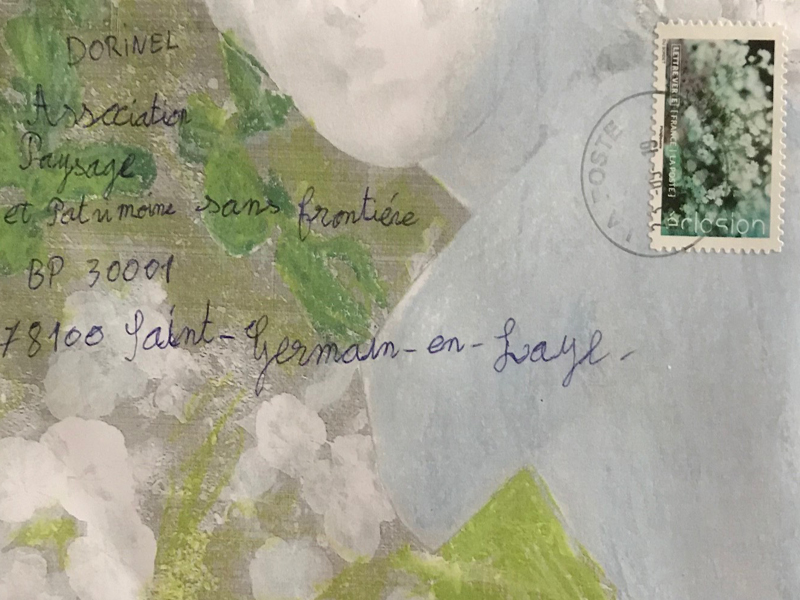 DORINEL
Association
Paysage
et Patrimoine sans frontiére
BP 30001
78100 Saint-Germain-en-Laye.
LETTRE VERTE FRANCE LA POSTE
éclosion
LA POSTE